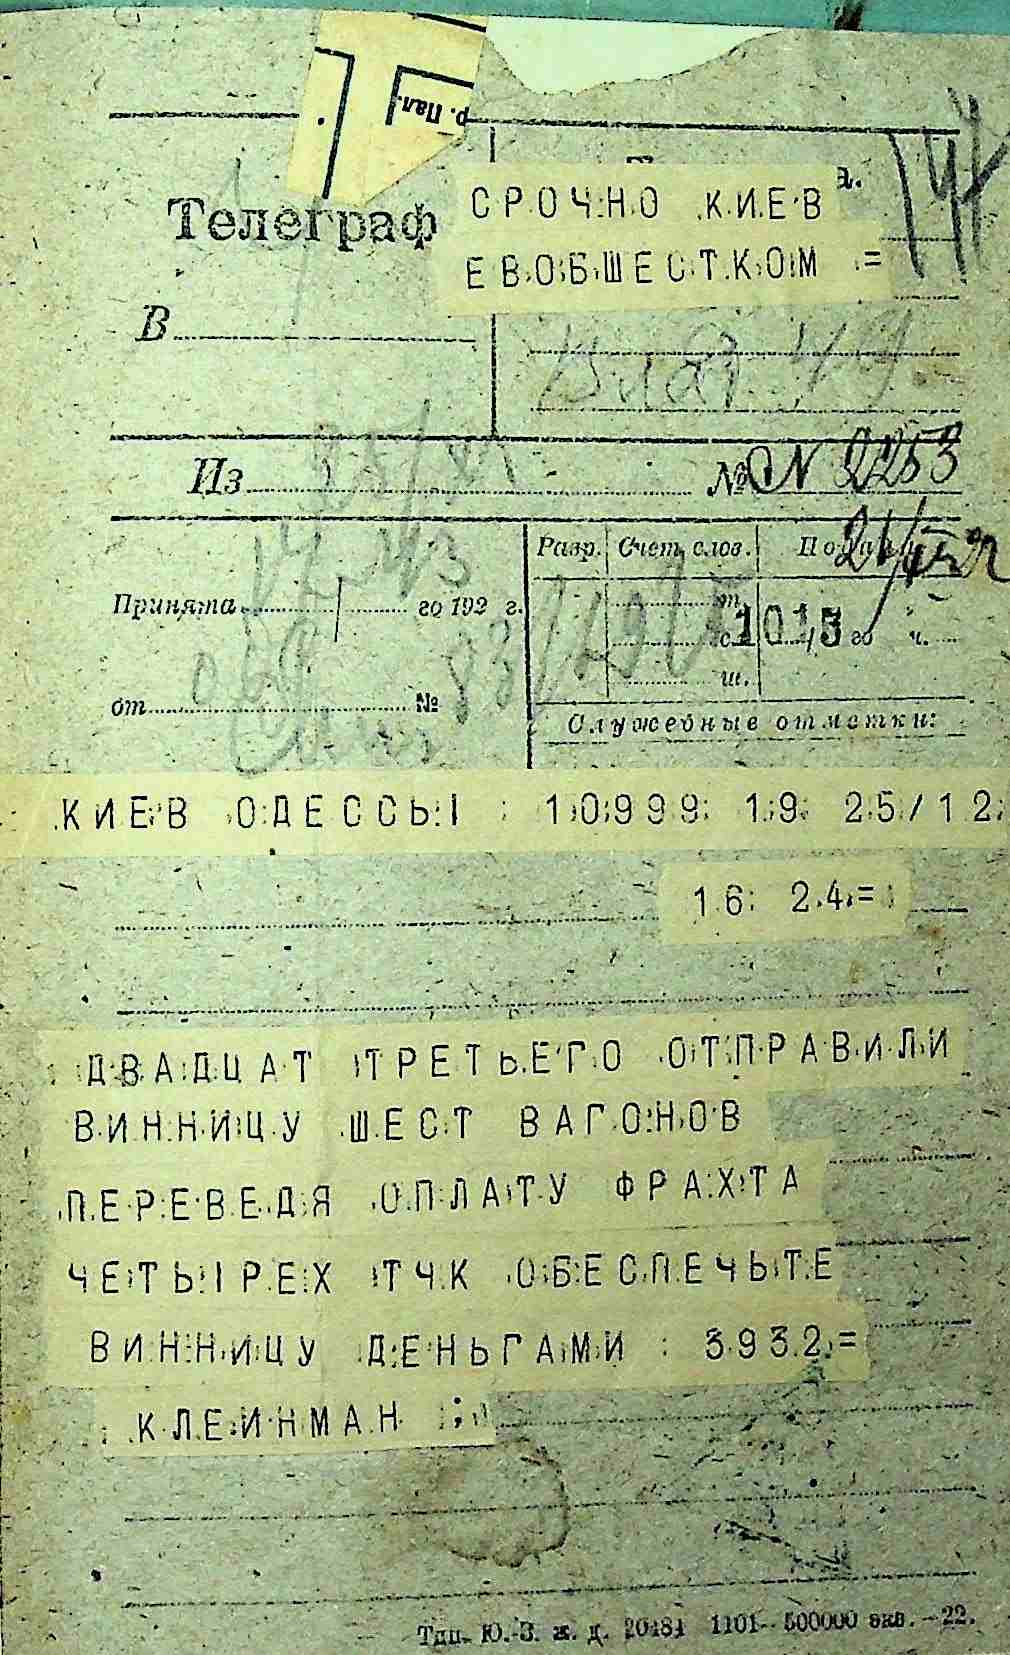 р. Пал.
Телеграф
СРОЧНО КИЕВ
ЕВОБШЕСТКОМ =
В
Из
№ N 2253
Принята го 192 г.
от №
Разр. Счет слов.
1015 го ч.
ш.
Служебные отметки:
КИЕВ ОДЕССЫ 10999 19 25/12
16 24=
ДВАДЦАТ ТРЕТЬЕГО ОТПРАВИЛИ
ВИННИЦУ ШЕСТ ВАГОНОВ
ПЕРЕВЕДЯ ОПЛАТУ ФРАХТА
ЧЕТЫРЕХ ТЧК ОБЕСПЕЧЬТЕ
ВИННИЦУ ДЕНЬГАМИ 3932=
КЛЕИНМАН ;
Тип. Ю.-З. ж. д. 20484 1101— 500000 экз. —22.